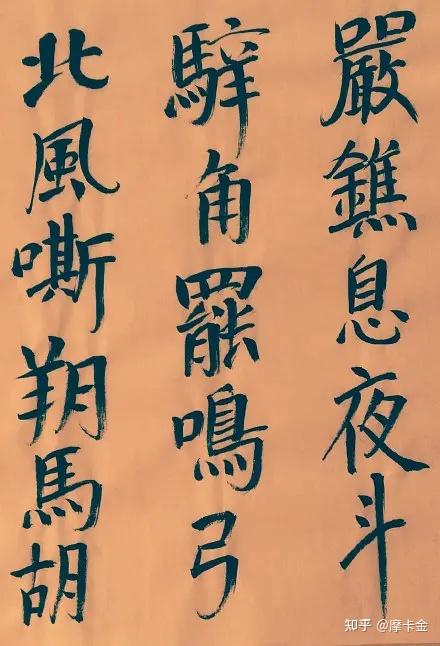 嚴鐎息夜斗
騂角罷鳴弓
北風嘶朔馬胡
知乎 @摩卡金